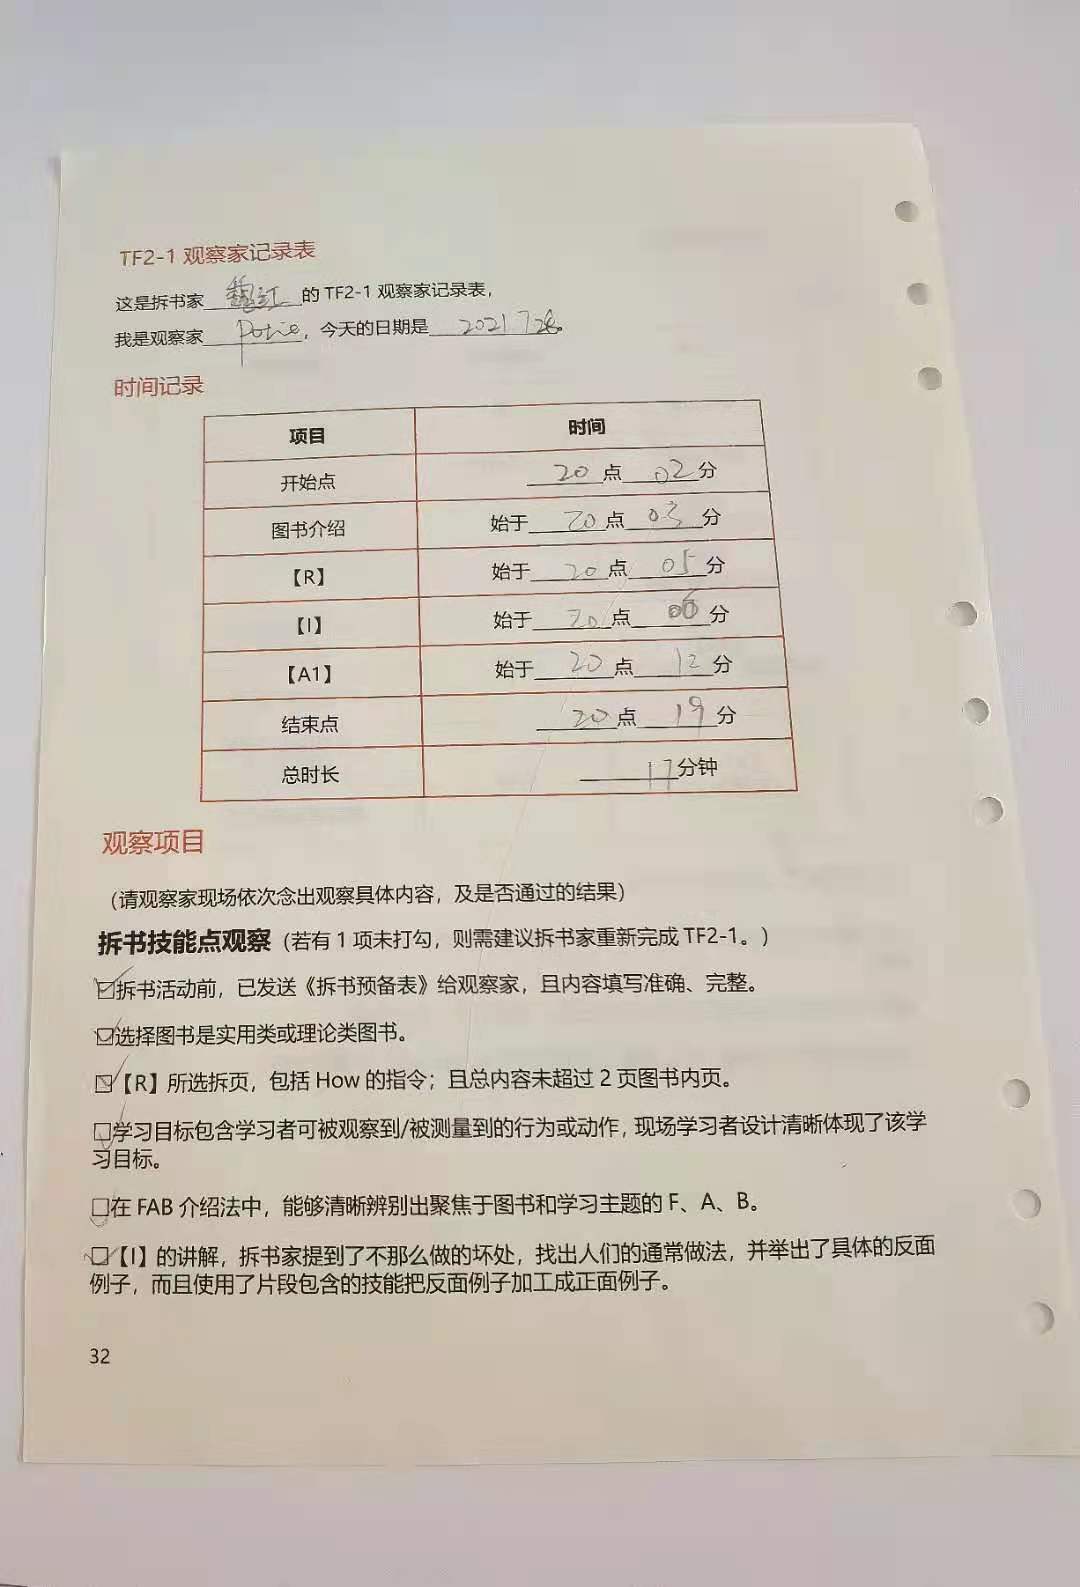 TF2-1 观察家记录表
这是拆书家 魏红 的 TF2-1 观察家记录表,
我是观察家 , 今天的日期是 2021 7 28。
时间记录
项目 时间
开始点 20 点 02 分
图书介绍 始于 20 点 03 分
【R】 始于 20 点 05 分
【I】 始于 20 点 06 分
【A1】 始于 20 点 12 分
结束点 20 点 19 分
总时长 17 分钟
观察项目
(请观察家现场依次念出观察具体内容，及是否通过的结果)
拆书技能点观察 (若有 1 项未打勾，则需建议拆书家重新完成 TF2-1。)
☑拆书活动前，已发送《拆书预备表》给观察家，且内容填写准确、完整。
☑选择图书是实用类或理论类图书。
☑【R】所选拆页，包括 How 的指令；且总内容未超过 2 页图书内页。
☑学习目标包含学习者可被观察到/被测量到的行为或动作，现场学习者设计清晰体现了该学
习目标。
☑在 FAB 介绍法中，能够清晰辨别出聚焦于图书和学习主题的 F、A、B。
☑【I】的讲解，拆书家提到了不那么做的坏处，找出人们的通常做法，并举出了具体的反面
例子，而且使用了片段包含的技能把反面例子加工成正面例子。
32